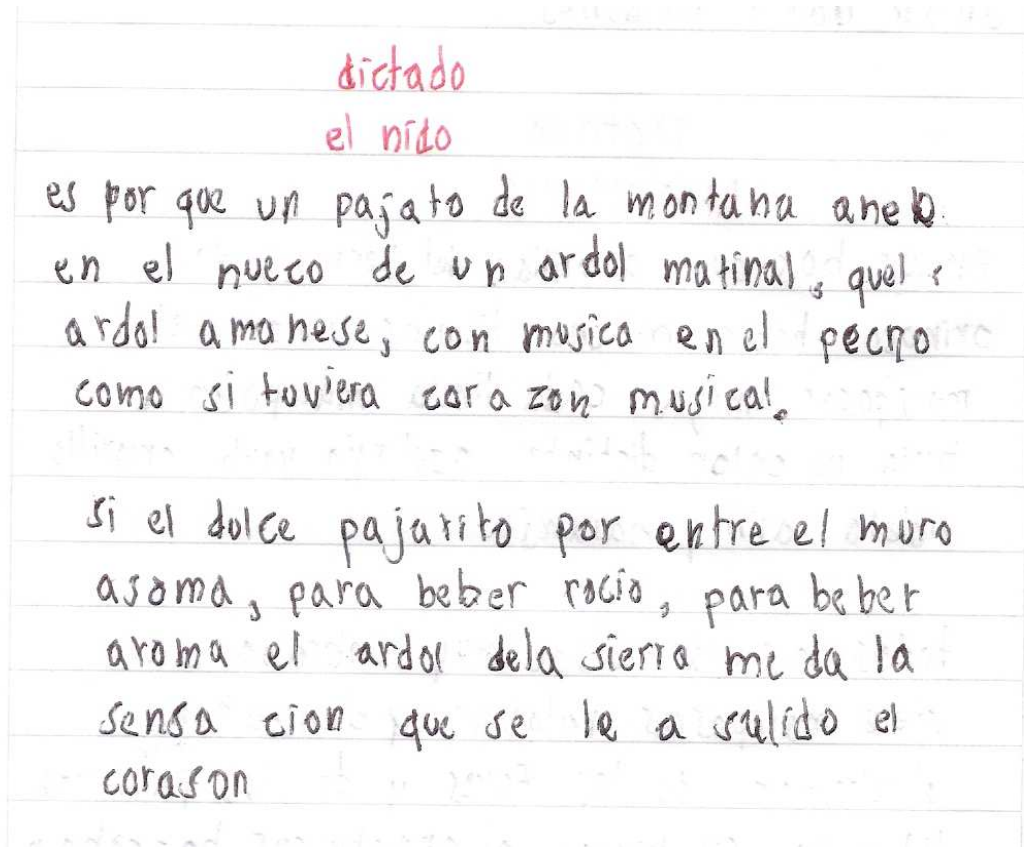 dictado
el nido
es por que un pajato de la montaha anelo
en el nueco de un ardol matinal, quel
ardol amahese, con musica en el pecno
como si tuviera corazon musical.
si el dulce pajarito por entre el muro
asoma, para beber rocio, para beber
aroma el ardol dela sierra me da la
sensa cion que se le a sulido el
corason